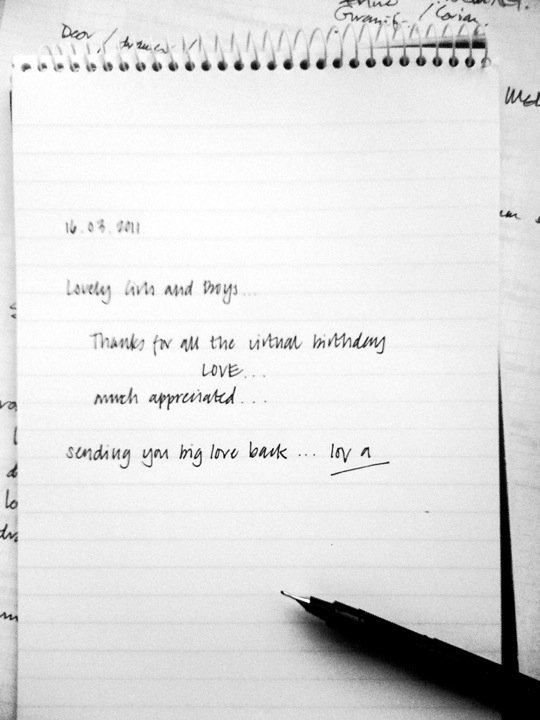 Dear /
16.03.2011
Lovely Girls and Boys...
Thanks for all the virtual birthday
LOVE...
much appreciated...
sending you big love back ... lov a